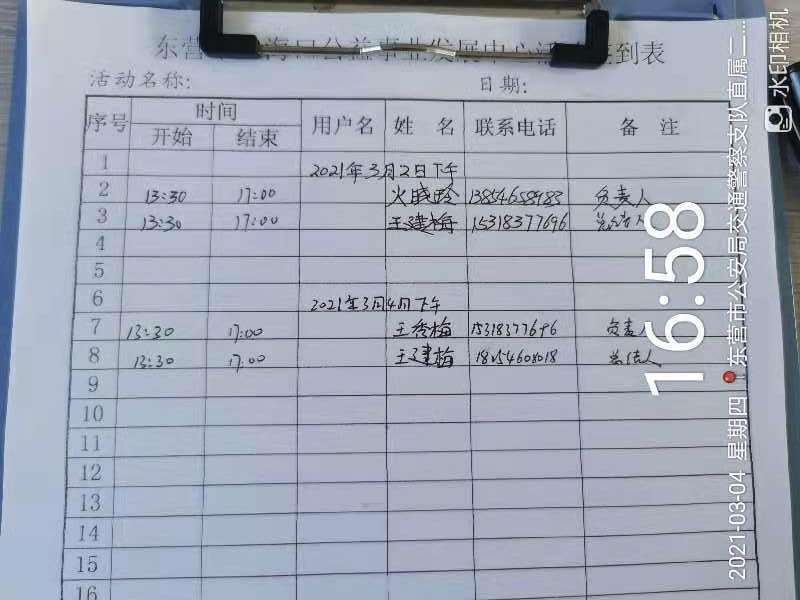 东营 海口公益事业发展中心活 签到表
活动名称: 日期:
序号 时间 用户名 姓 名 联系电话 备 注
开始 结束
1 2021年3月2日下午
2 13:30 17:00 负责人
3 13:30 17:00 王建梅 15318377696
4
5
6 2021年3月4月下午
7 13:30 17:00 王秀梅 15318377696 负责人
8 13:30 17:00 王建梅 18254608018 总结人
9
10
11
12
13
14
15
16
水印相机
16:58
东营市公安局交通警察支队直属二...
2021-03-04 星期四